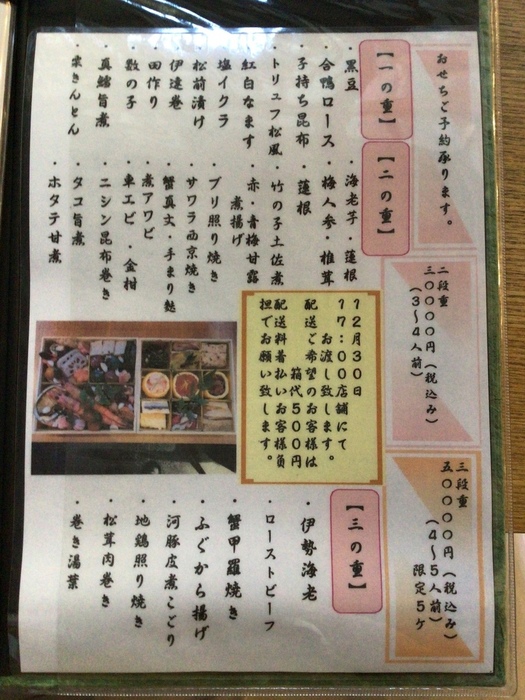 おせちご予約承ります。
二段重
三〇〇〇〇円（税込み）
（3～4人前）
三段重
五〇〇〇〇円（税込み）
（4～5人前）
限定5ケ
【一の重】
・黒豆
・合鴨ロース
・子持ち昆布
・トリュフ松風
・紅白なます
・塩イクラ
・松前漬け
・伊達巻
・田作り
・数の子
・真鱈旨煮
・栗きんとん
【二の重】
・海老芋・蓮根
・梅人参・椎茸
・蓮根
・竹の子土佐煮
・赤・青梅甘露
煮揚げ
・ブリ照り焼き
・サワラ西京焼き
・蟹真丈・手まり麩
・煮アワビ
・車エビ・金柑
・ニシン昆布巻き
・タコ旨煮
・ホタテ甘煮
12月30日
17:00店舗にて
お渡し致します。
配送ご希望のお客様は
箱代500円
配送料着払いお客様負
担でお願い致します。
【三の重】
・伊勢海老
・ローストビーフ
・蟹甲羅焼き
・ふぐから揚げ
・河豚皮煮こごり
・地鶏照り焼き
・松茸肉巻き
・巻き湯葉